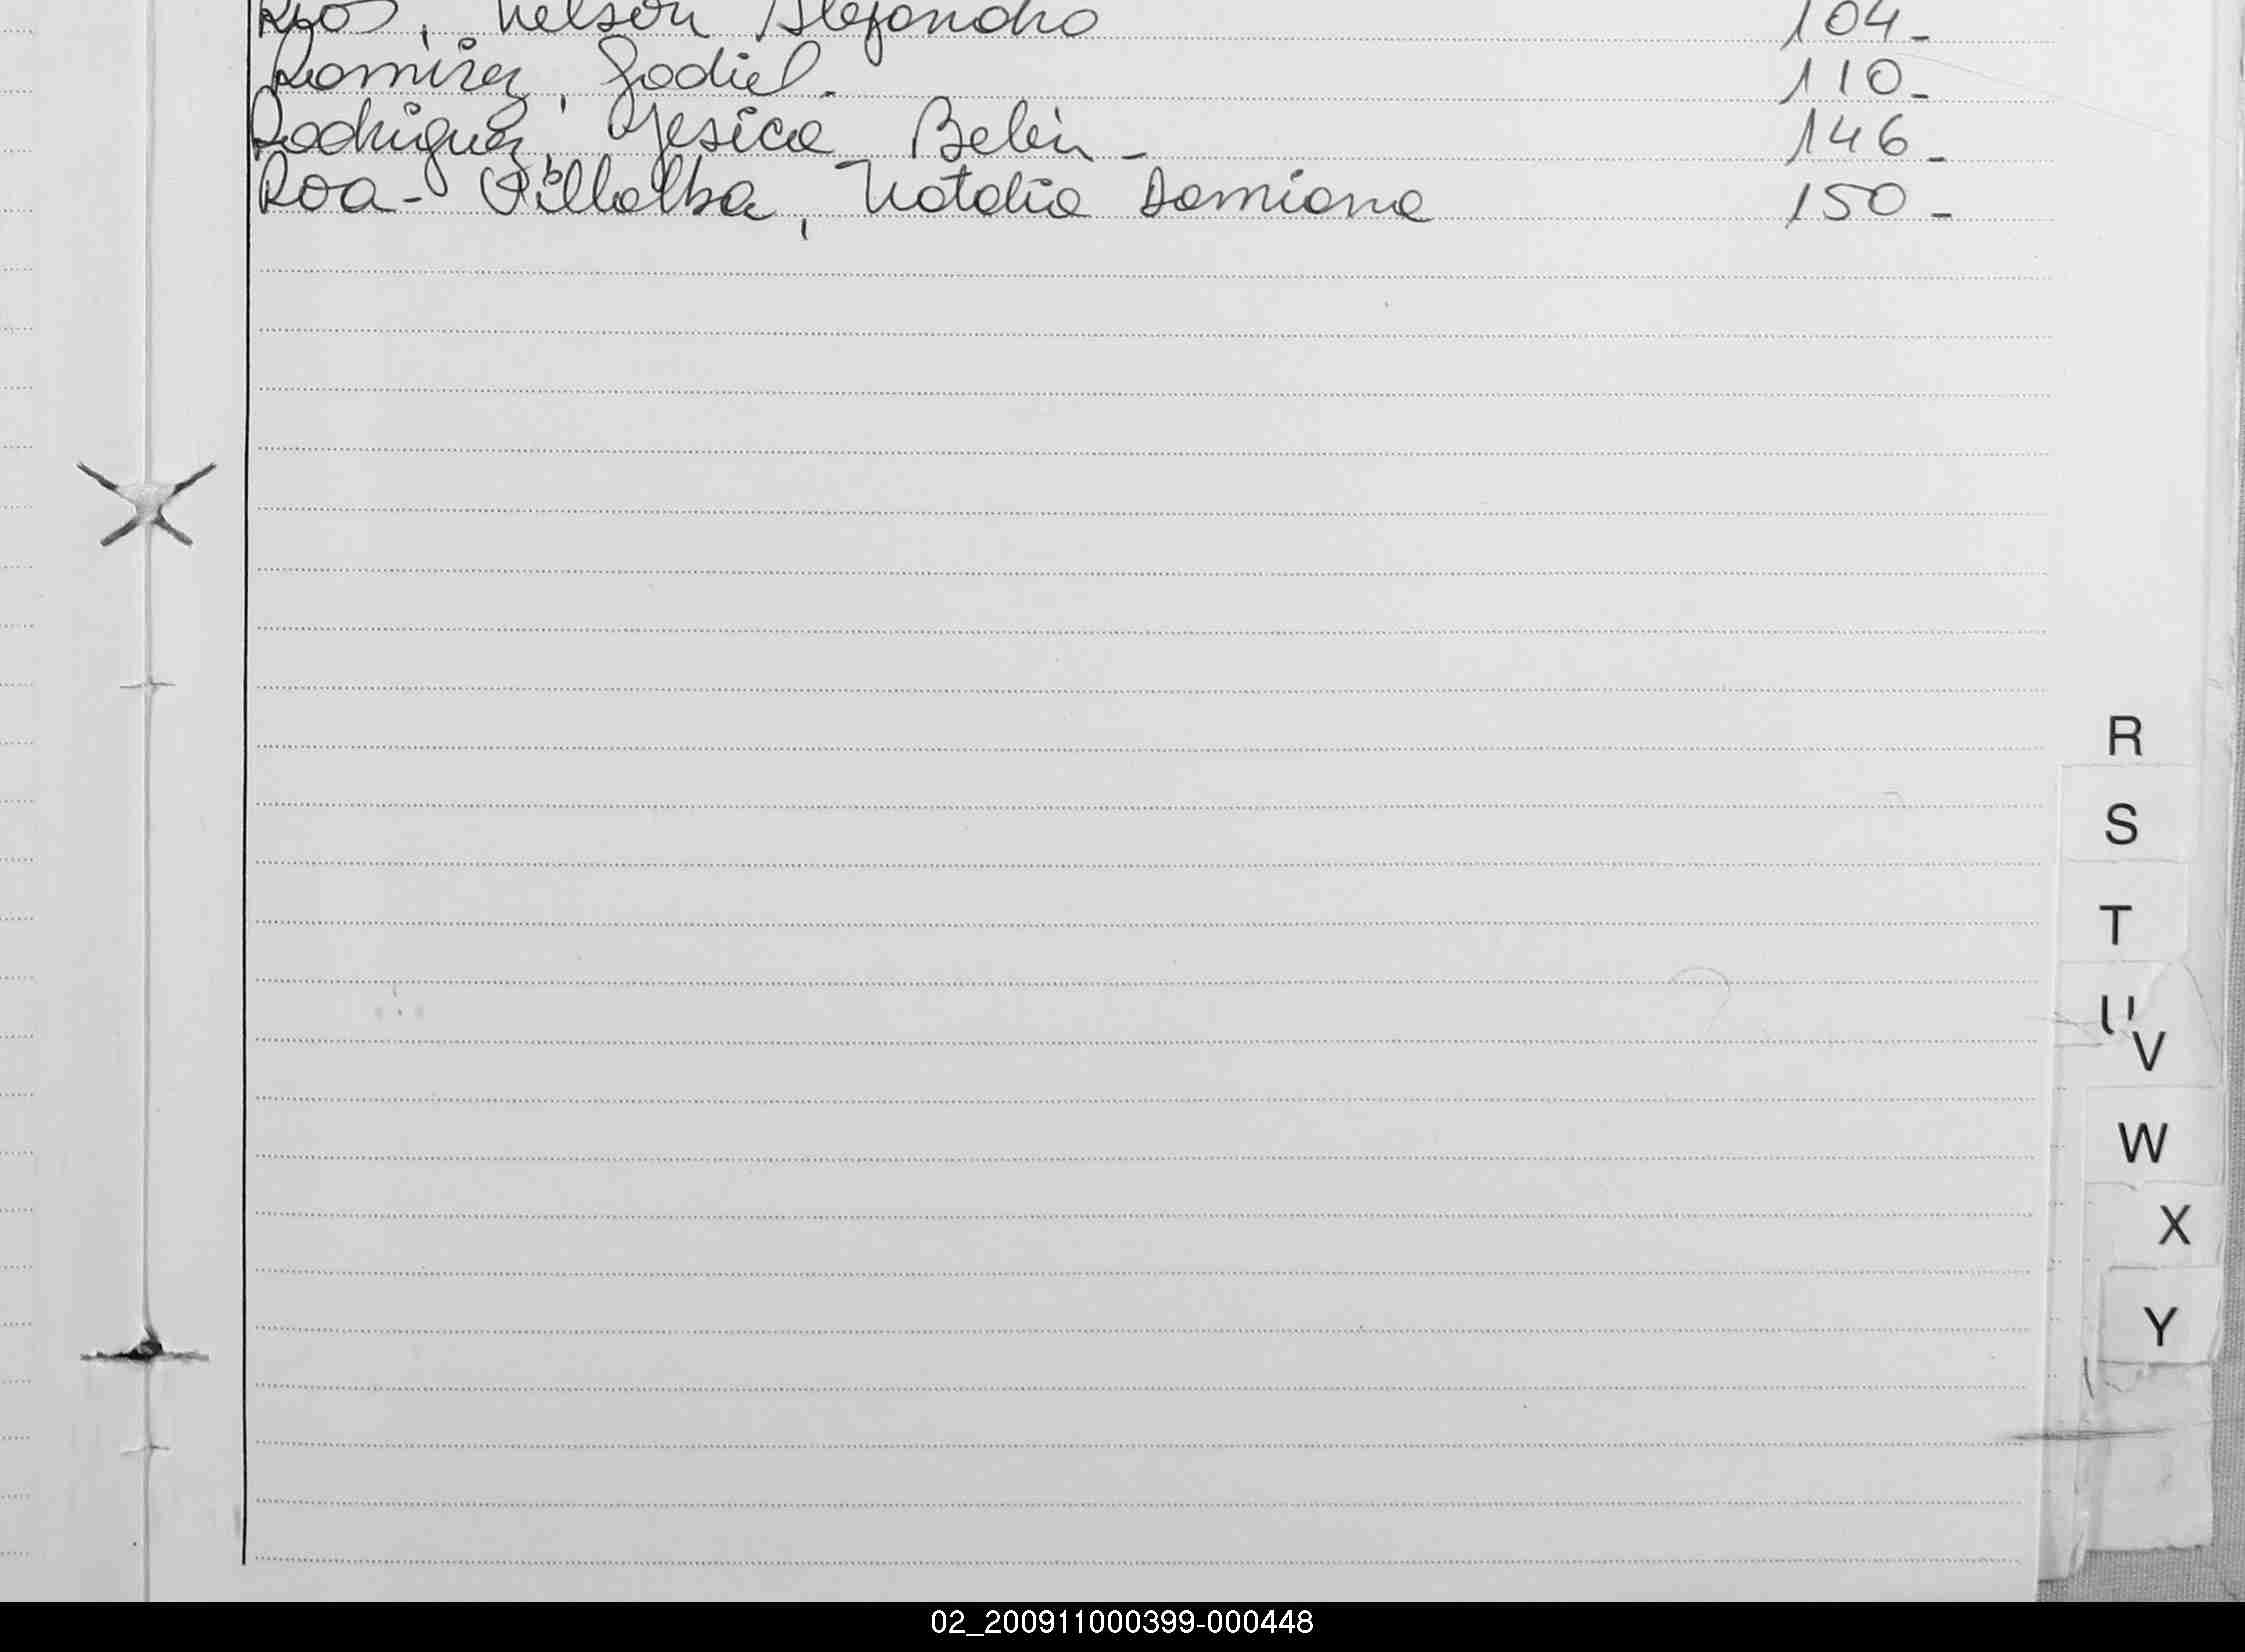 Ríos, Nelson Alejandro 104-
Ramírez, Jodiel. 110-
Rodriguez, Yesica Belén - 146-
Roa - Villalba, Natalia Damiana 150-
R
S
T
U
V
W
X
Y
02_200911000399-000448